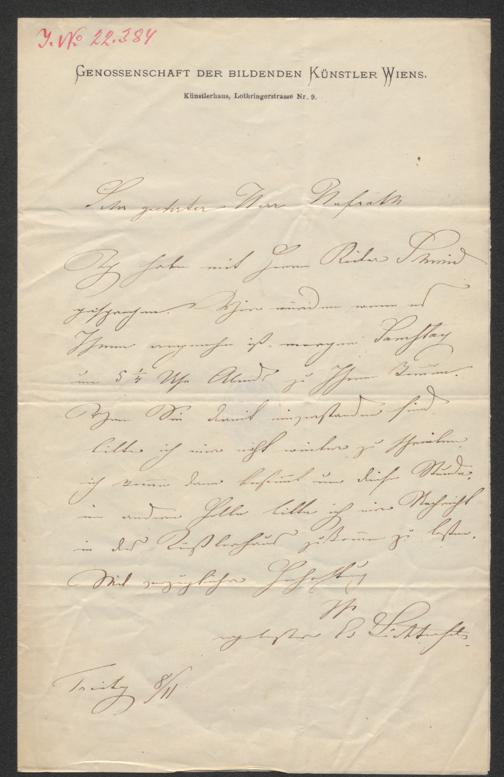 J. No 22.384
GENOSSENSCHAFT DER BILDENDEN KÜNSTLER WIENS.
Künstlerhaus, Lothringerstrasse Nr. 9.
Sehr geehrter Herr Hofrath
Ich habe mit Herrn Ritter Schmid
gesprochen. Wir würden wenn es
Ihnen angenehm ist morgen Samstag
um 5 ¼ Uhr Abends zu Ihnen kommen.
Wenn Sie damit einverstanden sind
bitte ich mir nicht weiter zu schreiben
ich komme dann bestimmt um diese Stunde,
im anderen Falle bitte ich mir Nachricht
in das Künstlerhaus zukommen zu lassen.
Mit vorzüglicher Hochachtung
Ihr
ergebenster
Freitag 8/11